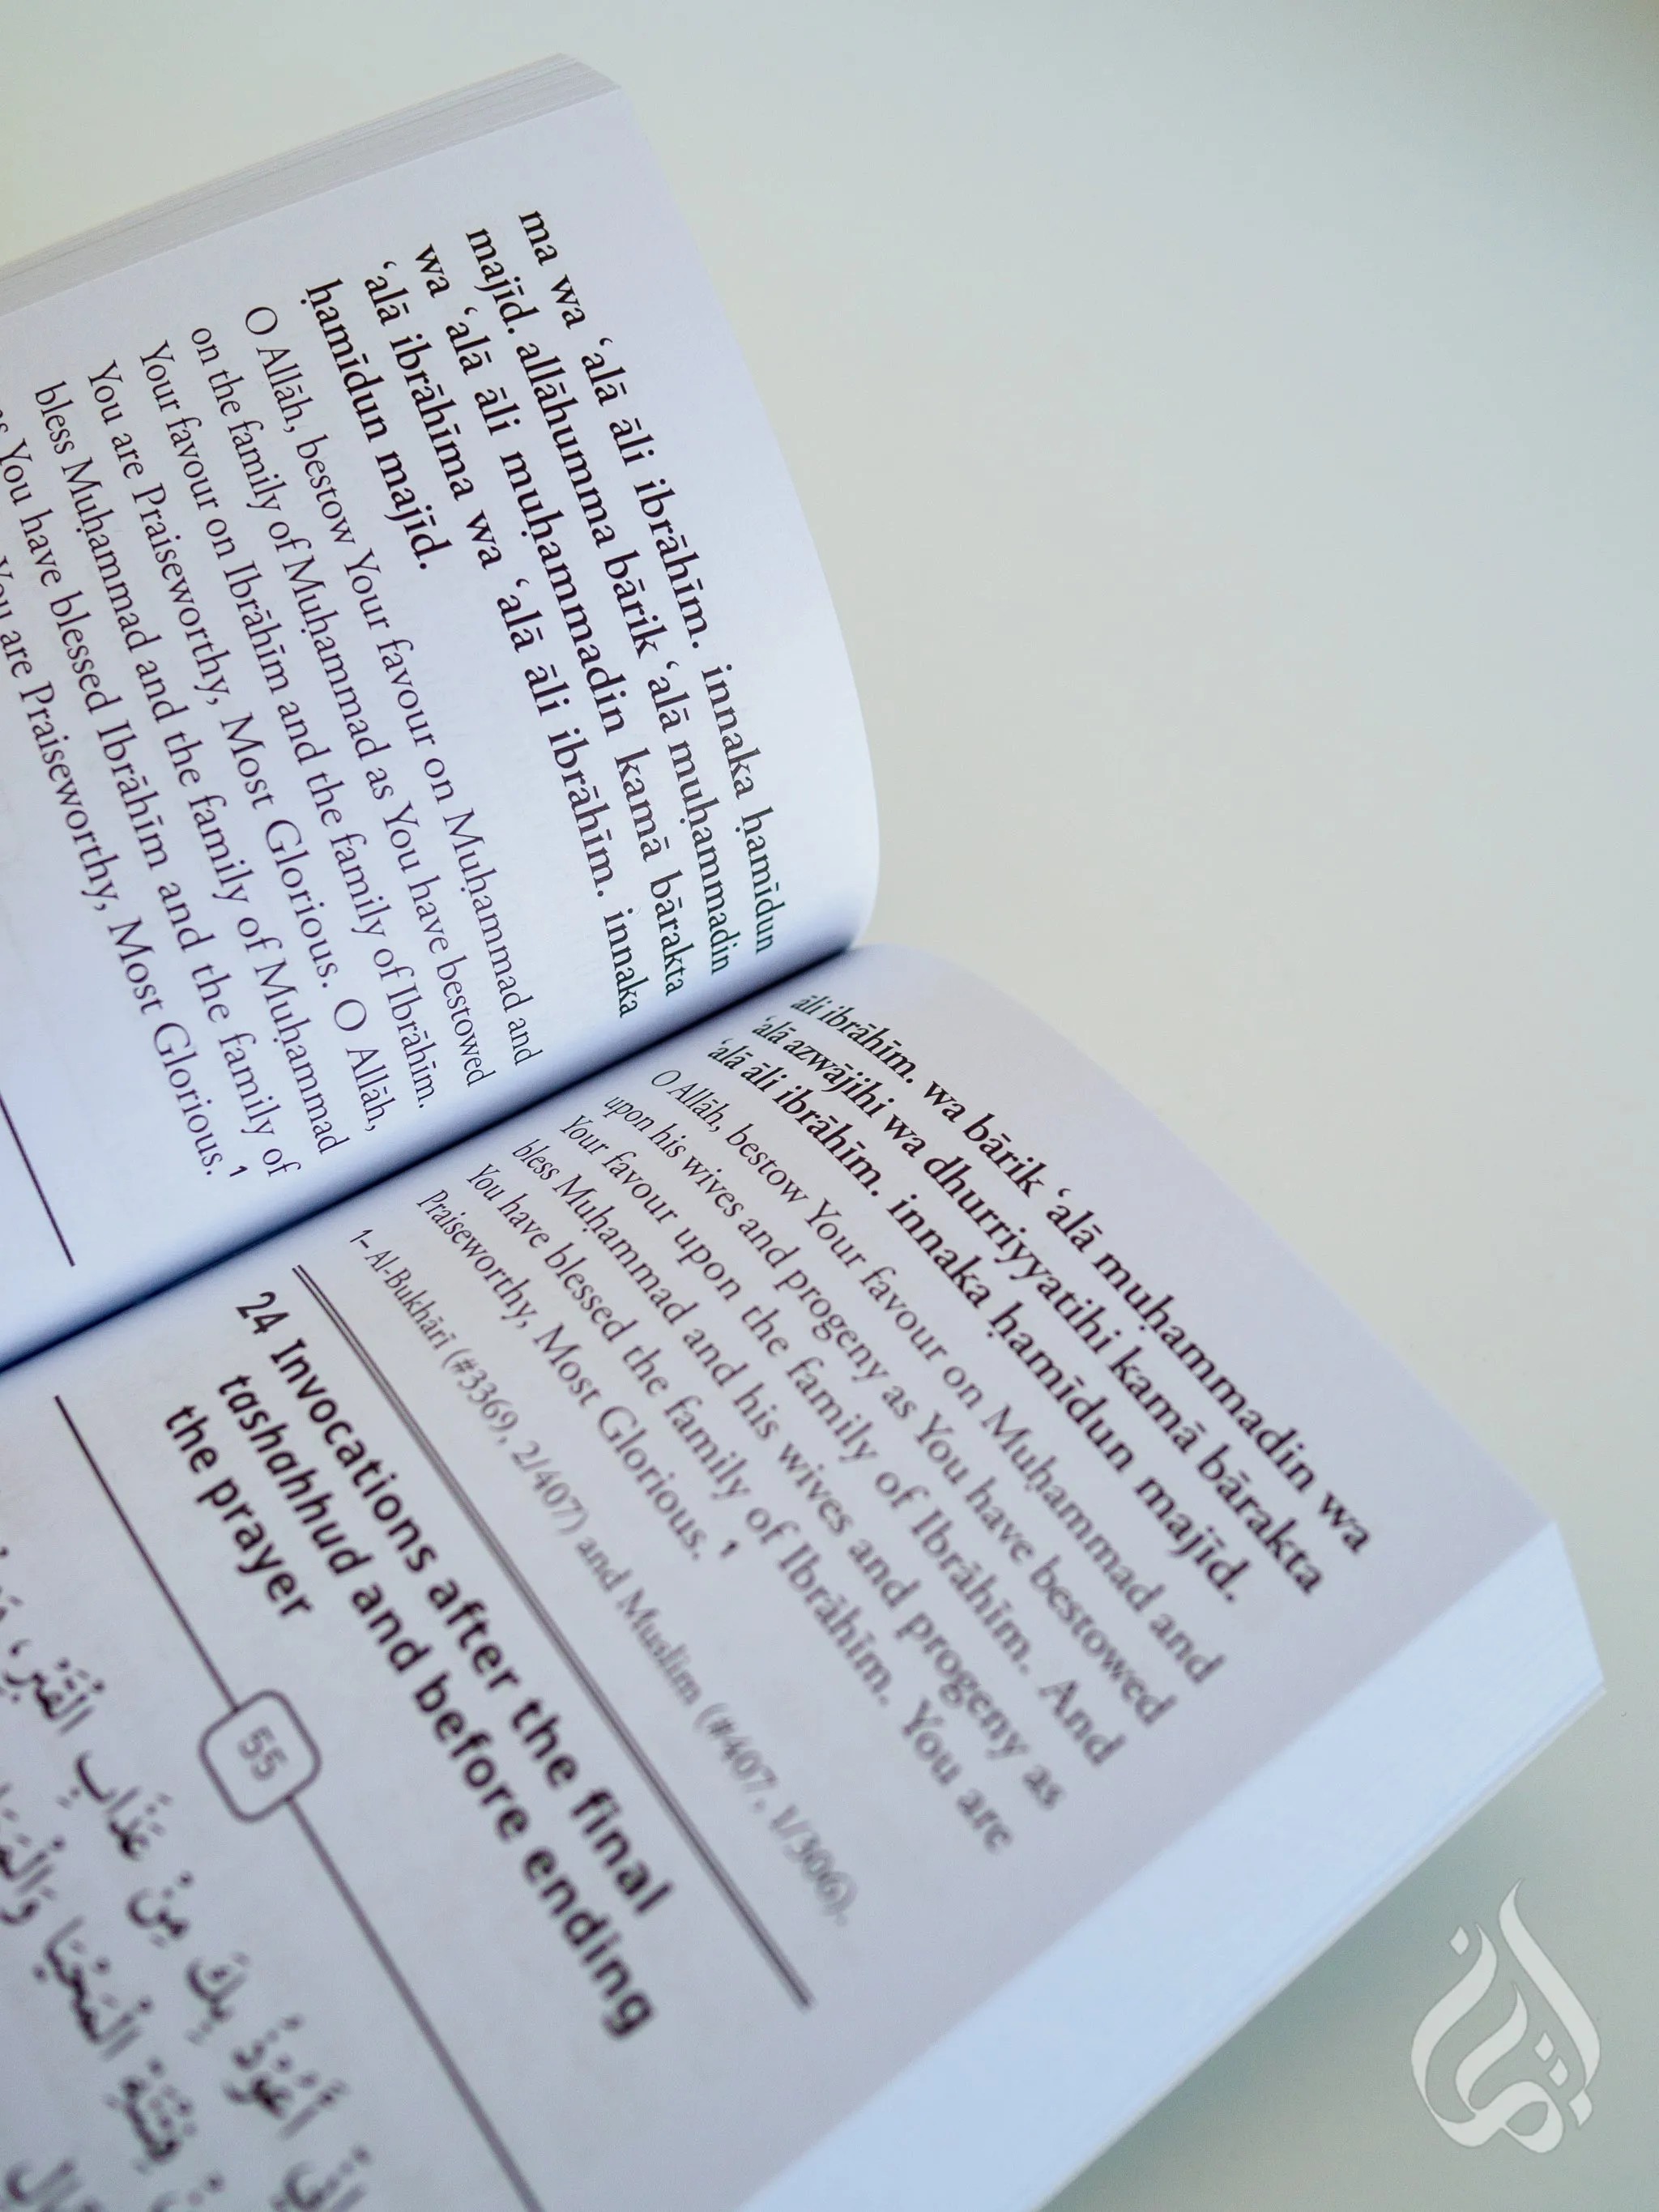 ma wa ‘alā āli ibrāhīm. innaka ḥamīdun
majīd. allāhumma bārik ‘alā muḥammadin
wa ‘alā āli muḥammadin kamā bārakta
‘alā ibrāhīma wa ‘alā āli ibrāhīm. innaka
ḥamīdun majīd.
O Allāh, bestow Your favour on Muḥammad and
on the family of Muḥammad as You have bestowed
Your favour on Ibrāhīm and the family of Ibrāhīm.
You are Praiseworthy, Most Glorious. O Allāh,
bless Muḥammad and the family of Muḥammad
You have blessed Ibrāhīm and the family of
are Praiseworthy, Most Glorious. 1
āli ibrāhīm. wa bārik ‘alā muḥammadin wa
‘alā azwājihi wa dhurriyyatihi kamā bārakta
‘alā āli ibrāhīm. innaka ḥamīdun majīd.
O Allāh, bestow Your favour on Muḥammad and
upon his wives and progeny as You have bestowed
Your favour upon the family of Ibrāhīm. And
bless Muḥammad and his wives and progeny as
You have blessed the family of Ibrāhīm. You are
Praiseworthy, Most Glorious. 1
1- Al-Bukhārī (#3369, 2/407) and Muslim (#407, 1/306).
24 Invocations after the final
tashahhud and before ending
the prayer
55
أَعُوْذُ بِكَ مِنْ عَذَابِ الْقَبْرِ،
فِتْنَةِ الْمَحْيَا